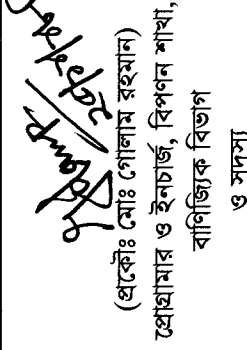 (প্রকৌঃ মোঃ গোলাম রহমান)
প্রোগ্রামার ও ইনচার্জ, বিপণন শাখা,
বাণিজ্যিক বিভাগ
ও সদস্য